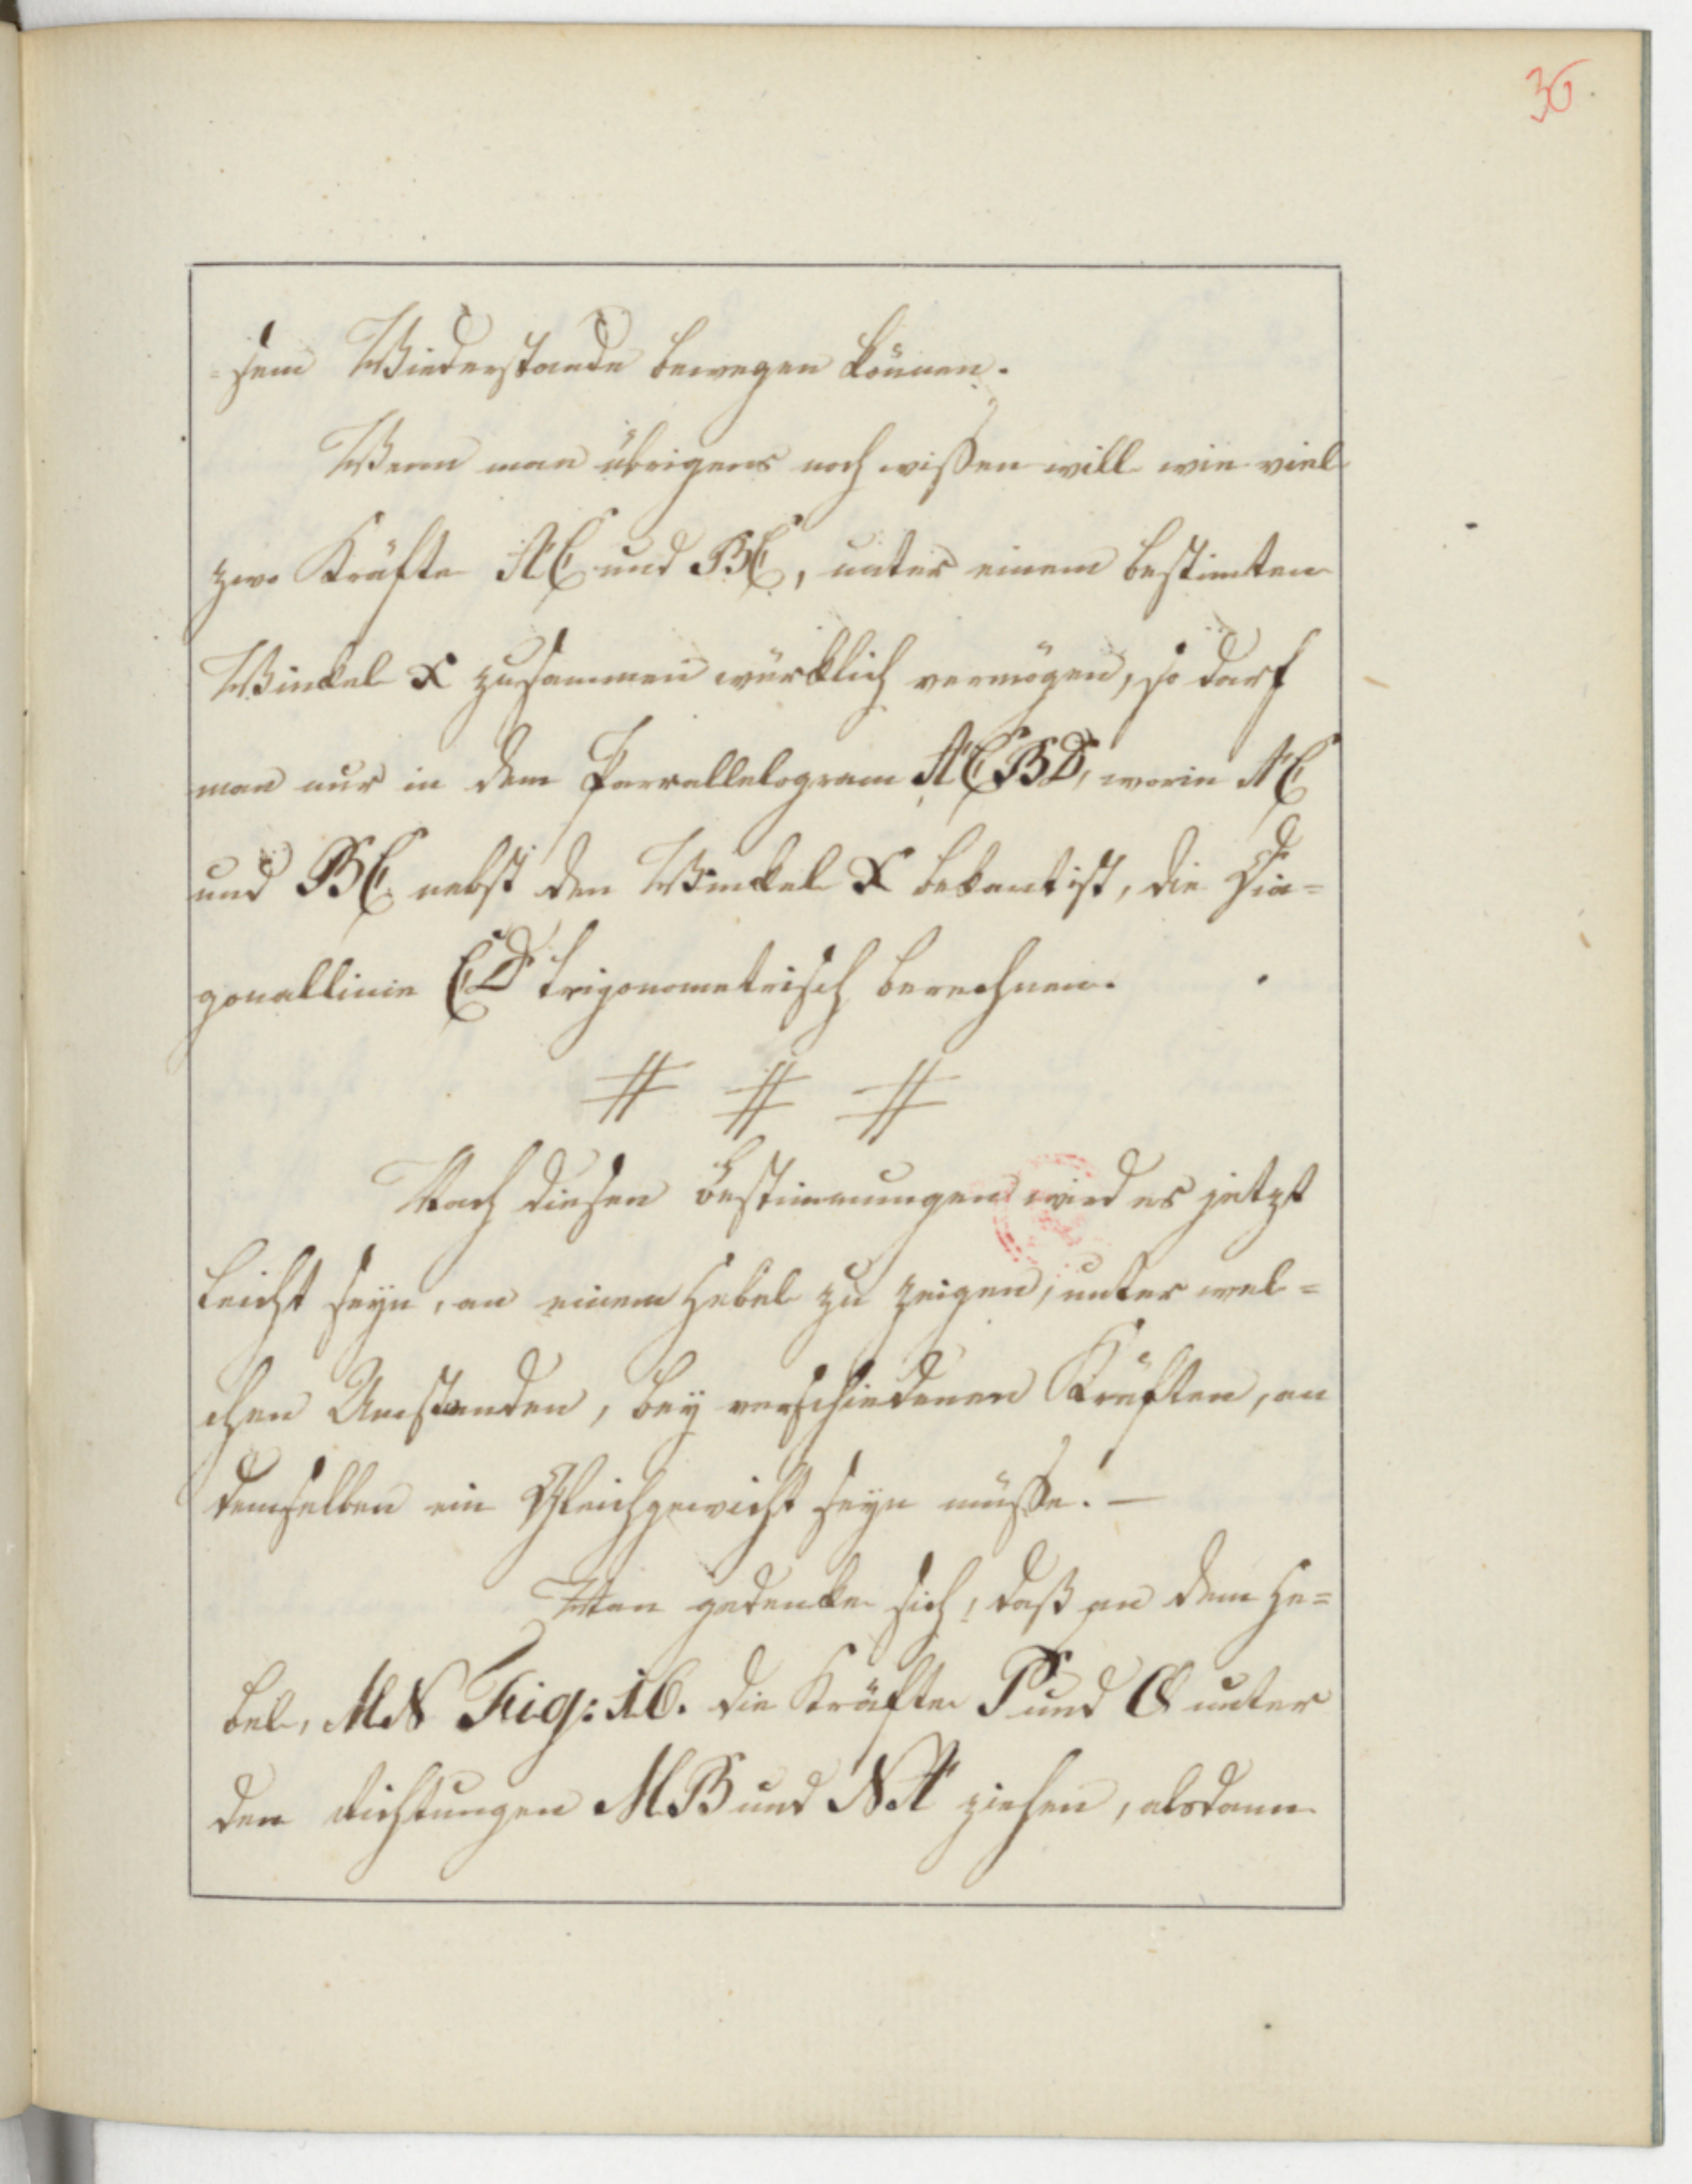 36.
=sem Wiederstande bewegen können.
Wenn man übrigens noch wißen will wie viel
zwo Kräfte AC und BC, unter einem bestimten
Winckel X zusammen würcklich vermögen, so darf
man nur in dem Parrallelogram ACBD, worin AC
und BC nebst den Winckel X bekant ist, die Dia=
gonallinie CD trigonometrisch berechnen.
# # #
Nach diesen Bestimmungen wird es jetzt
leicht seyn, an einem Hebel zu zeigen, unter wel=
chen Umstanden, bey verschiedenen Kräften, an
demselben ein Gleichgewicht seyn müße. —
Man gedencke sich, daß an dem He=
bel, MN Fig: 16. die Kräfte P und Q unter
den Richtungen MB und NA ziehen, alsdann